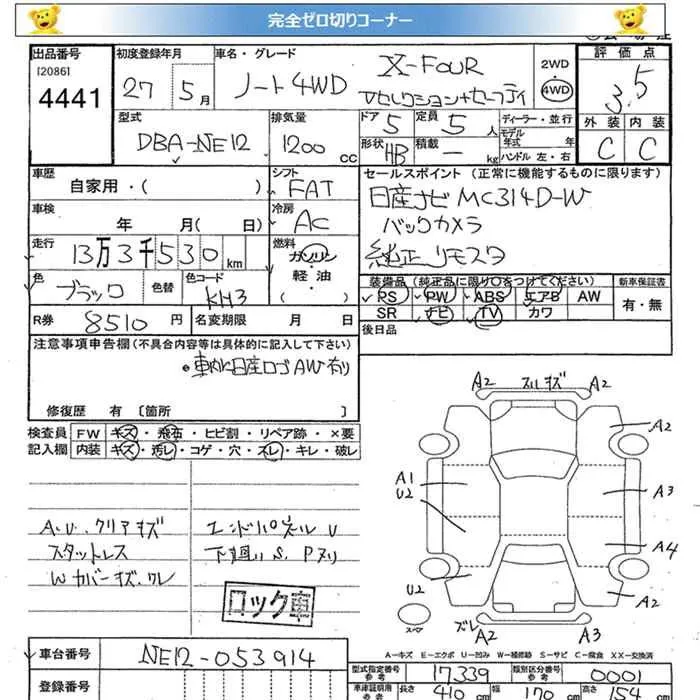 完全ゼロ切りコーナー
出品番号 初度登録年月 車名・グレード X-FOUR 2WD 評価点
[2086] 27年 5月 ノート4WD Vセレクション+セーフティ 4WD 3.5
4441 型式 排気量 ドア 5 定員 5人 ディーラー・並行 外装 内装
DBA-NE12 1200cc 形状 HB 積載 ーkg モデル年式 年 ハンドル 左・右 C C
車歴 自家用・( ) シフト FAT セールスポイント (正常に機能するものに限ります)
車検 年 月( 日) 冷房 AC 日産ナビ MC314D-W
バックカメラ
走行 13万3千530km 燃料 ガソリン 軽油 ( ) 純正リモスタ
色 ブラック 色替 色コード KH3 装備品 (純正品に限り○をつけてください) 新車保証書
PS PW ABS エアB AW 有・無
SR ナビ TV カワ
R券 8510円 名変期限 月 日 後日品
注意事項申告欄(不具合内容等は具体的に記入して下さい)
車内に日産ロゴAW有り
修復歴 有 [箇所 ]
検査員 FW キズ・飛石・ヒビ割・リペア跡・×要
記入欄 内装 キズ・汚レ・コゲ・穴・スレ・キレ・破レ
A.U.クリアキズ エンドパネルU
スタットレス 下廻りS、Pヌリ
Wカバーキズ、ワレ
ロック車
A2 スレキズ A2
A2
A1 A3
U2
A4
U2 A2
スペア ズレ A2 A3
A−キズ E−エクボ U−凹み W−補修跡 S−サビ C−腐食 XX−交換済
車台番号 NE12-053914 型式指定番号 参考 17339 類別区分番号 参考 0001
登録番号 車庫証明用 参考 長さ 410cm 幅 170cm 高さ 154cm